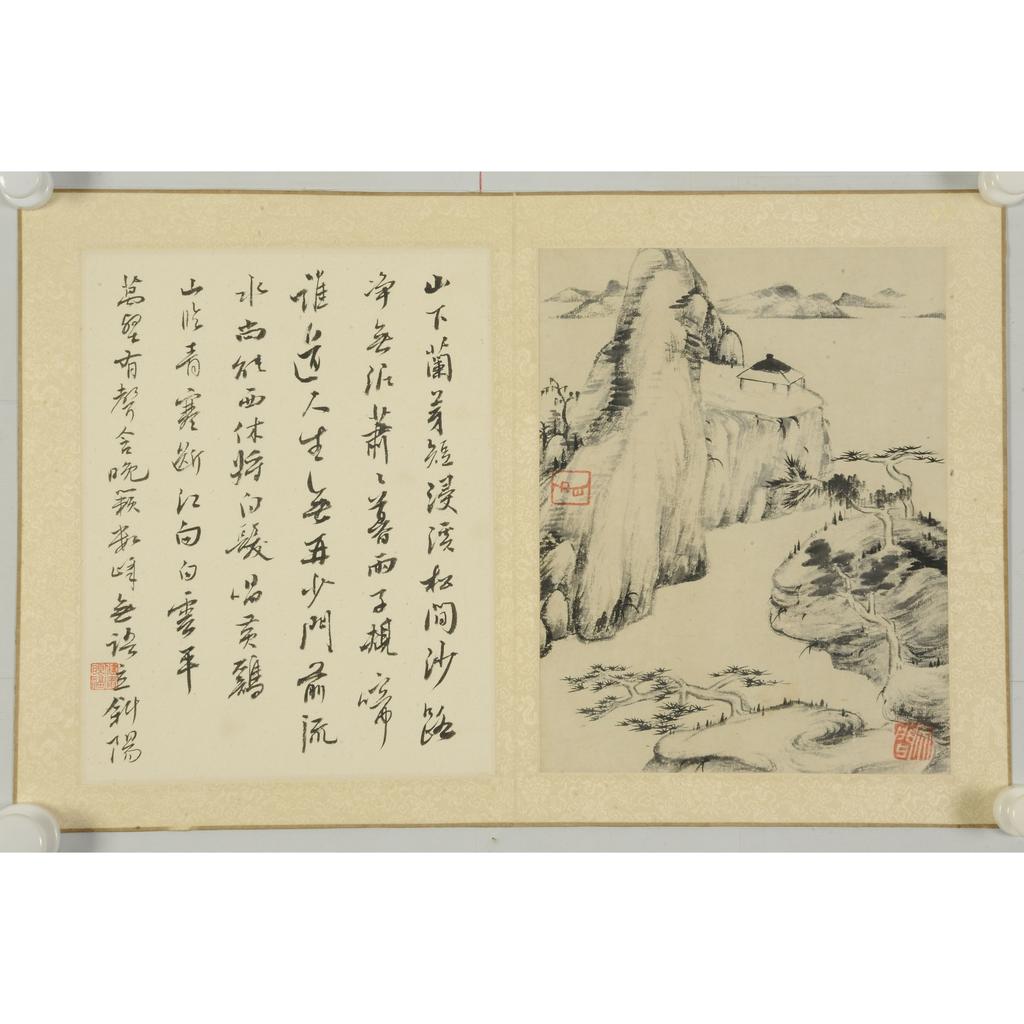 山下蘭芽短浸溪松間沙路
淨無泥蕭〻暮雨子規啼
誰道人生無再少門前流
水尚能西休將白髮唱黃鷄
山臨青塞斷江向白雲平
萬壑有聲含晚籟數峰無語立斜陽